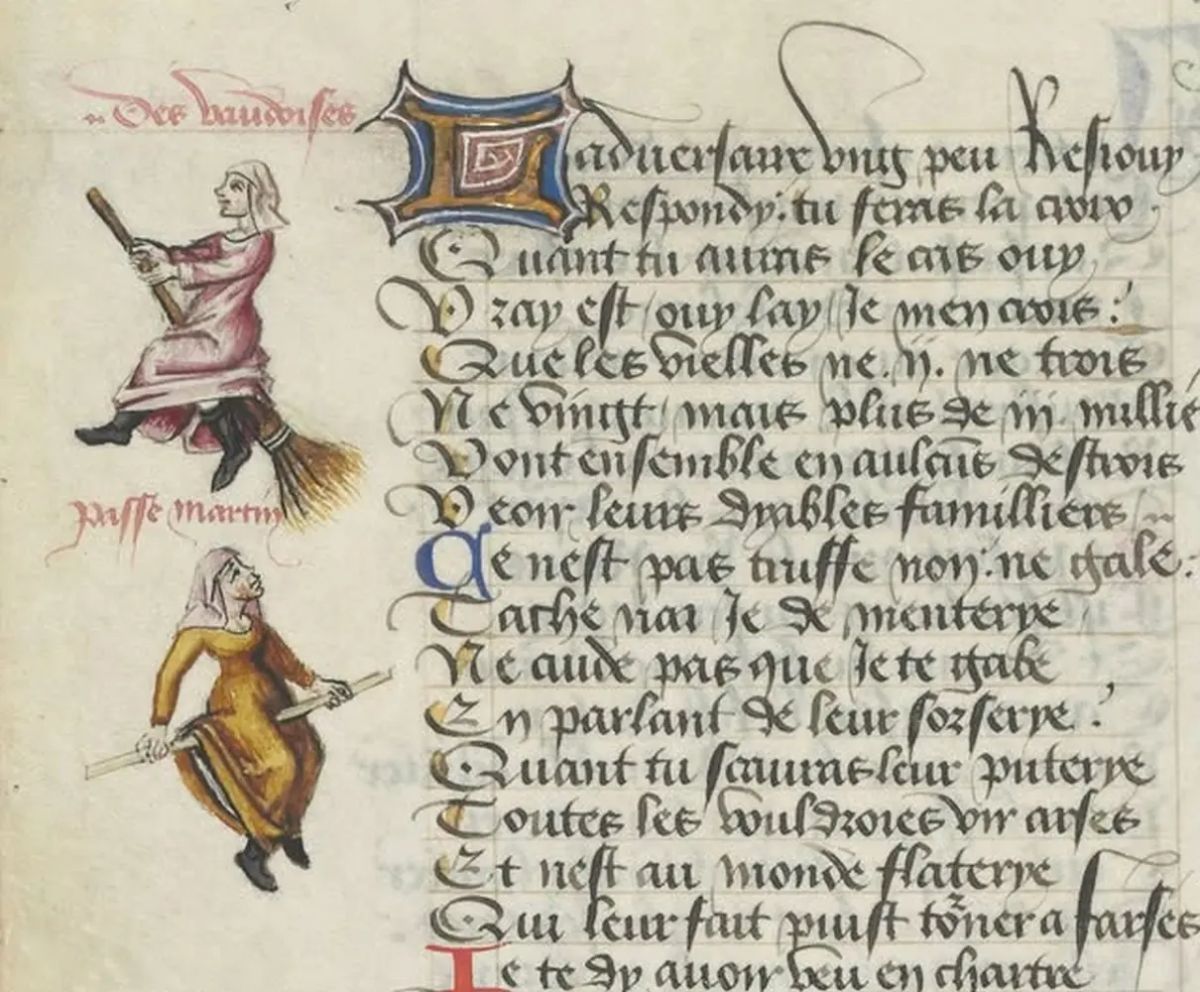 Des vaudoises
passe martin
Ladversaire ung peu Resiouy
Respondy: tu feras la croix
Quant tu auras le cas ouy
Vray est ouy lay Je men crois:
Que les vielles ne .ij. ne trois
Ne vingt mais plus de iij. millie
Vont ensemble en aulcũs destrois
Veoir leurs dyables familliers
Ce nest pas truffe non: ne gale:
Tache nai Je de menterye
Ne cuide pas que Je te gabe
En parlant de leur sorserye:
Quant tu scauras leur puterye
Toutes les vouldroies vir arses
Et nest au monde flaterye
Qui leur fait puist torner a farses
Je te dy avoir veu en chartre